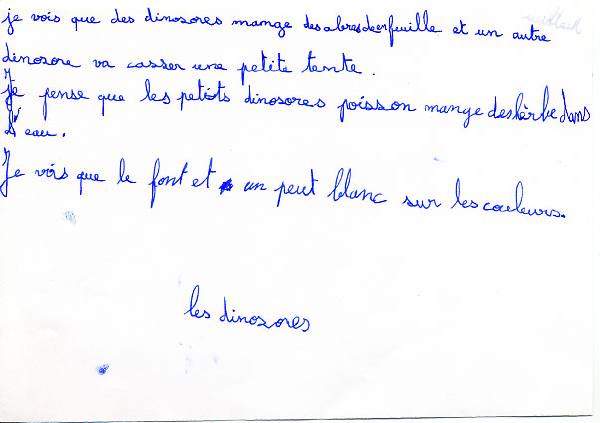 je vois que des dinosores mamge des abres de en feuille et un autre
dinosore va casser une petite tente.
Je pense que les petits dinosores poisson mange des hèrbe dans
L'eau.
Je vois que le font et un peut blanc sur les couleurs.
les dinosores